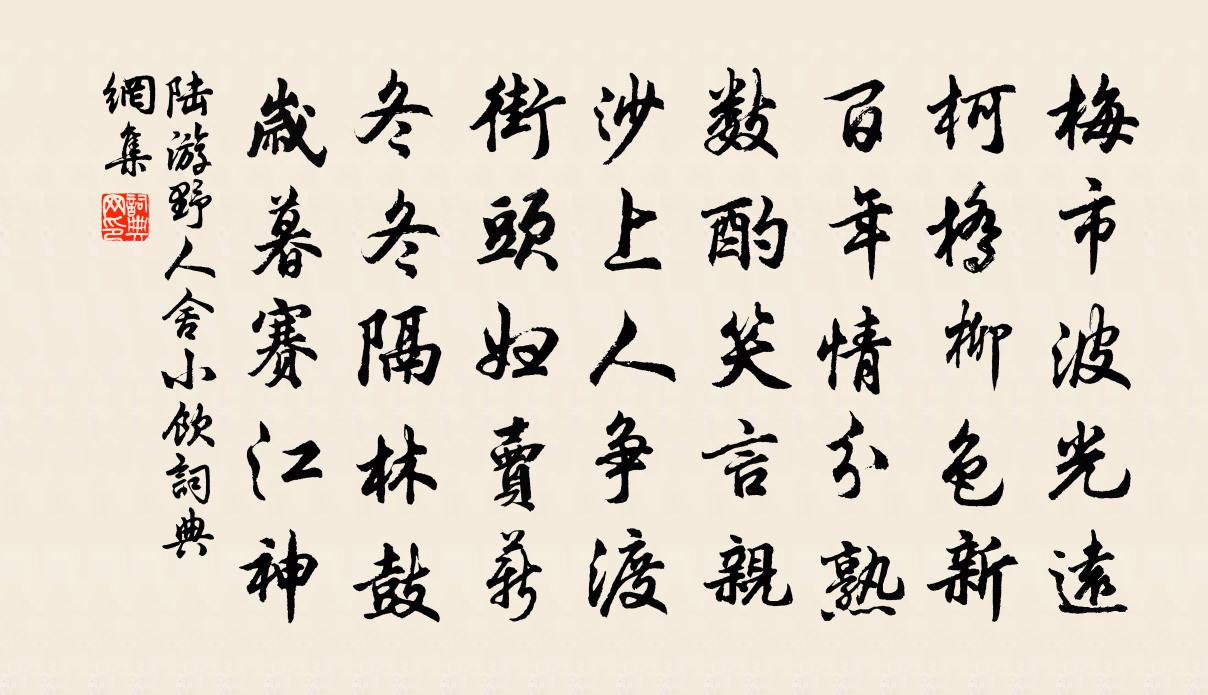 梅市波光遠
柯橋柳色新
百年情分熟
數酌笑言親
沙上人爭渡
街頭婦賣薪
冬冬隔林鼓
歲暮賽江神
陆游野人舍小飲詞典
網集
詞典
网印